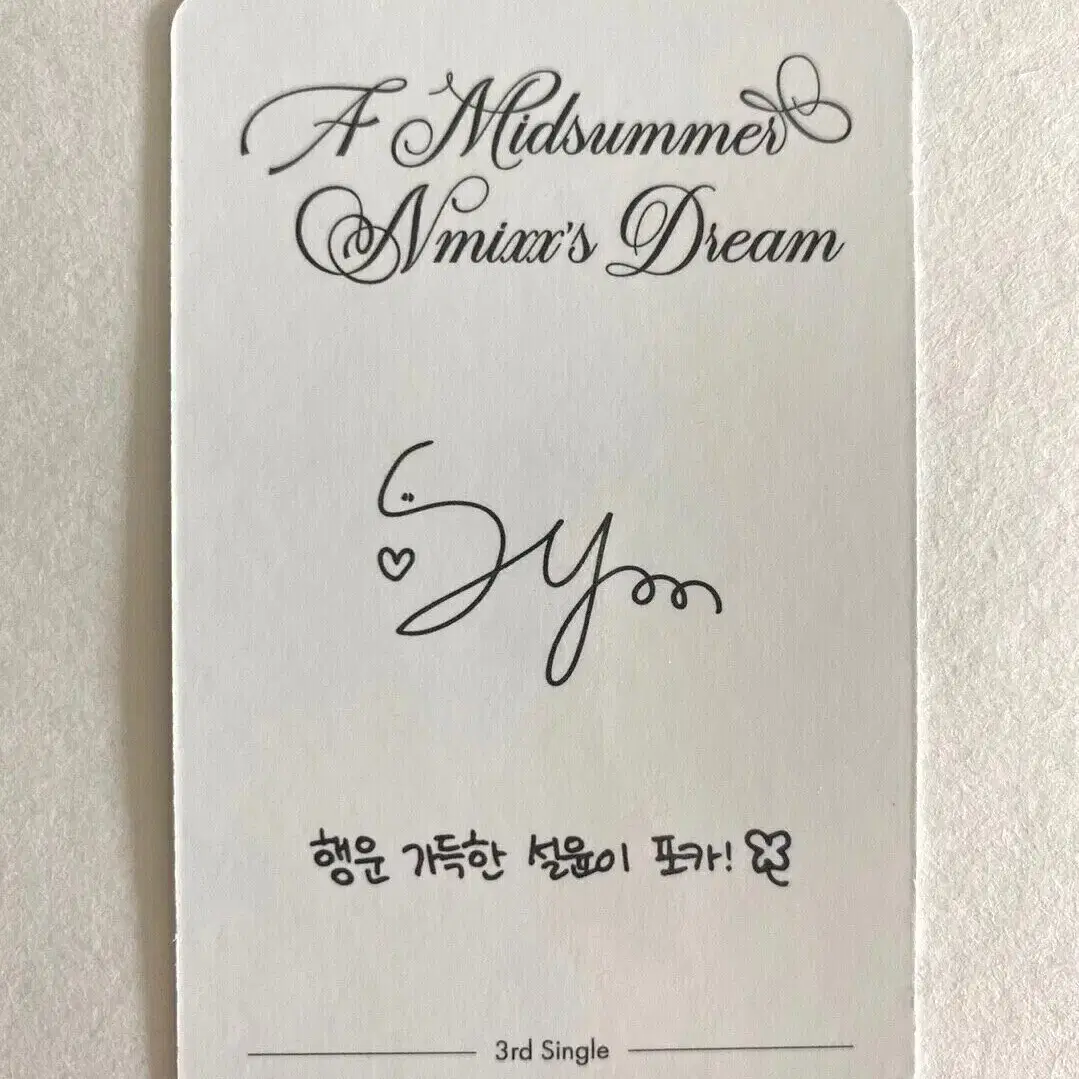 A Midsummer
Nmixx's Dream
Sy
행운 가득한 설윤이 포카!
3rd Single